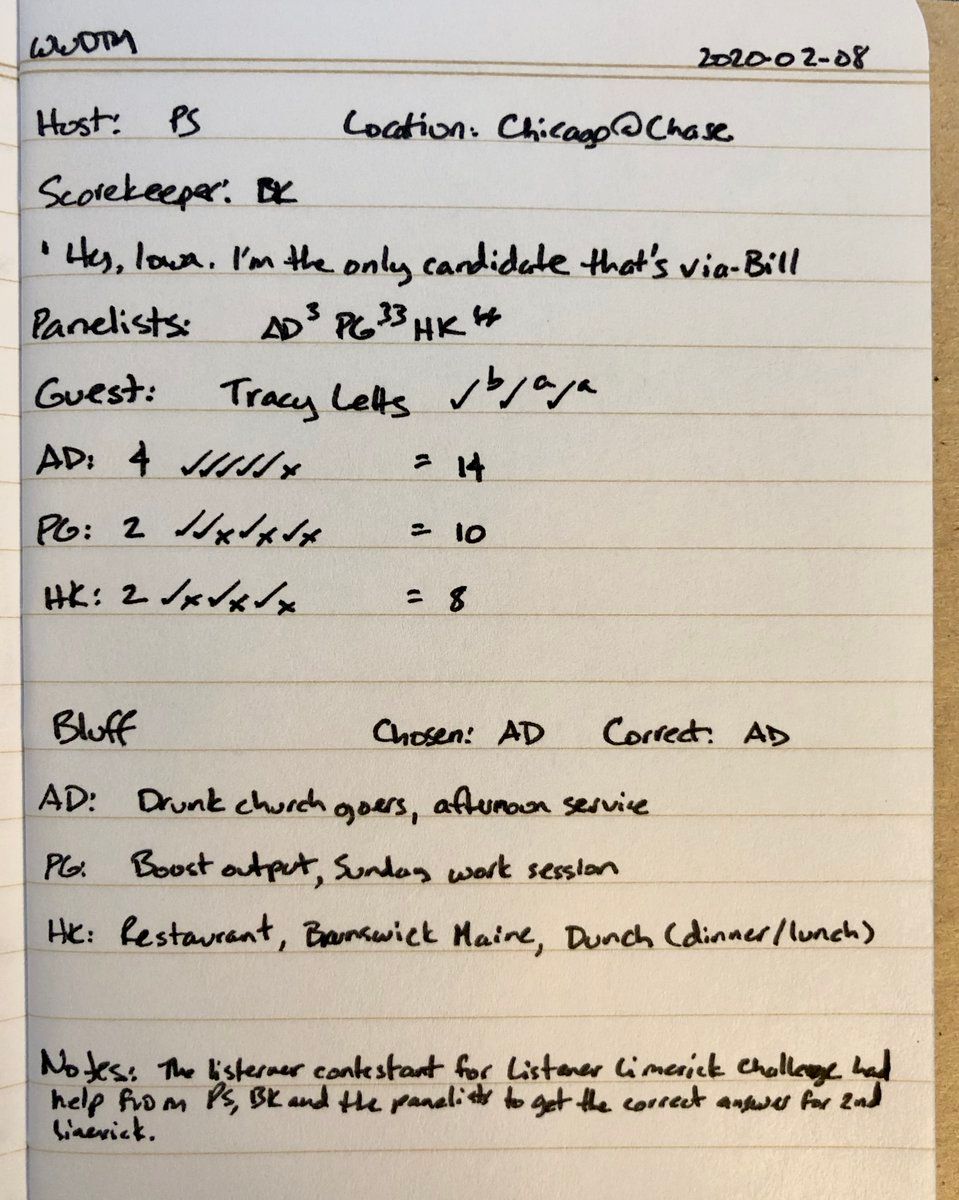 WWDTM 2020-02-08
Host: PS Location: Chicago@Chase
Scorekeeper: BK
' Hey, Iowa. I'm the only candidate that's via-Bill
Panelists: AD³ PG³³ HK
Guest: Tracy Letts ✓ᵇ✓ᵃ✓ᵃ
AD: 4 ✓✓✓✓✓x = 14
PG: 2 ✓✓x✓x✓x = 10
HK: 2 ✓x✓x✓x = 8
Bluff Chosen: AD Correct: AD
AD: Drunk church goers, afternoon service
PG: Boost output, Sunday work session
HK: Restaurant, Brunswick Maine, Dunch (dinner/lunch)
Notes: The listerner contestant for Listener Limerick Challenge had
help from PS, BK and the panelists to get the correct answer for 2nd
limerick.